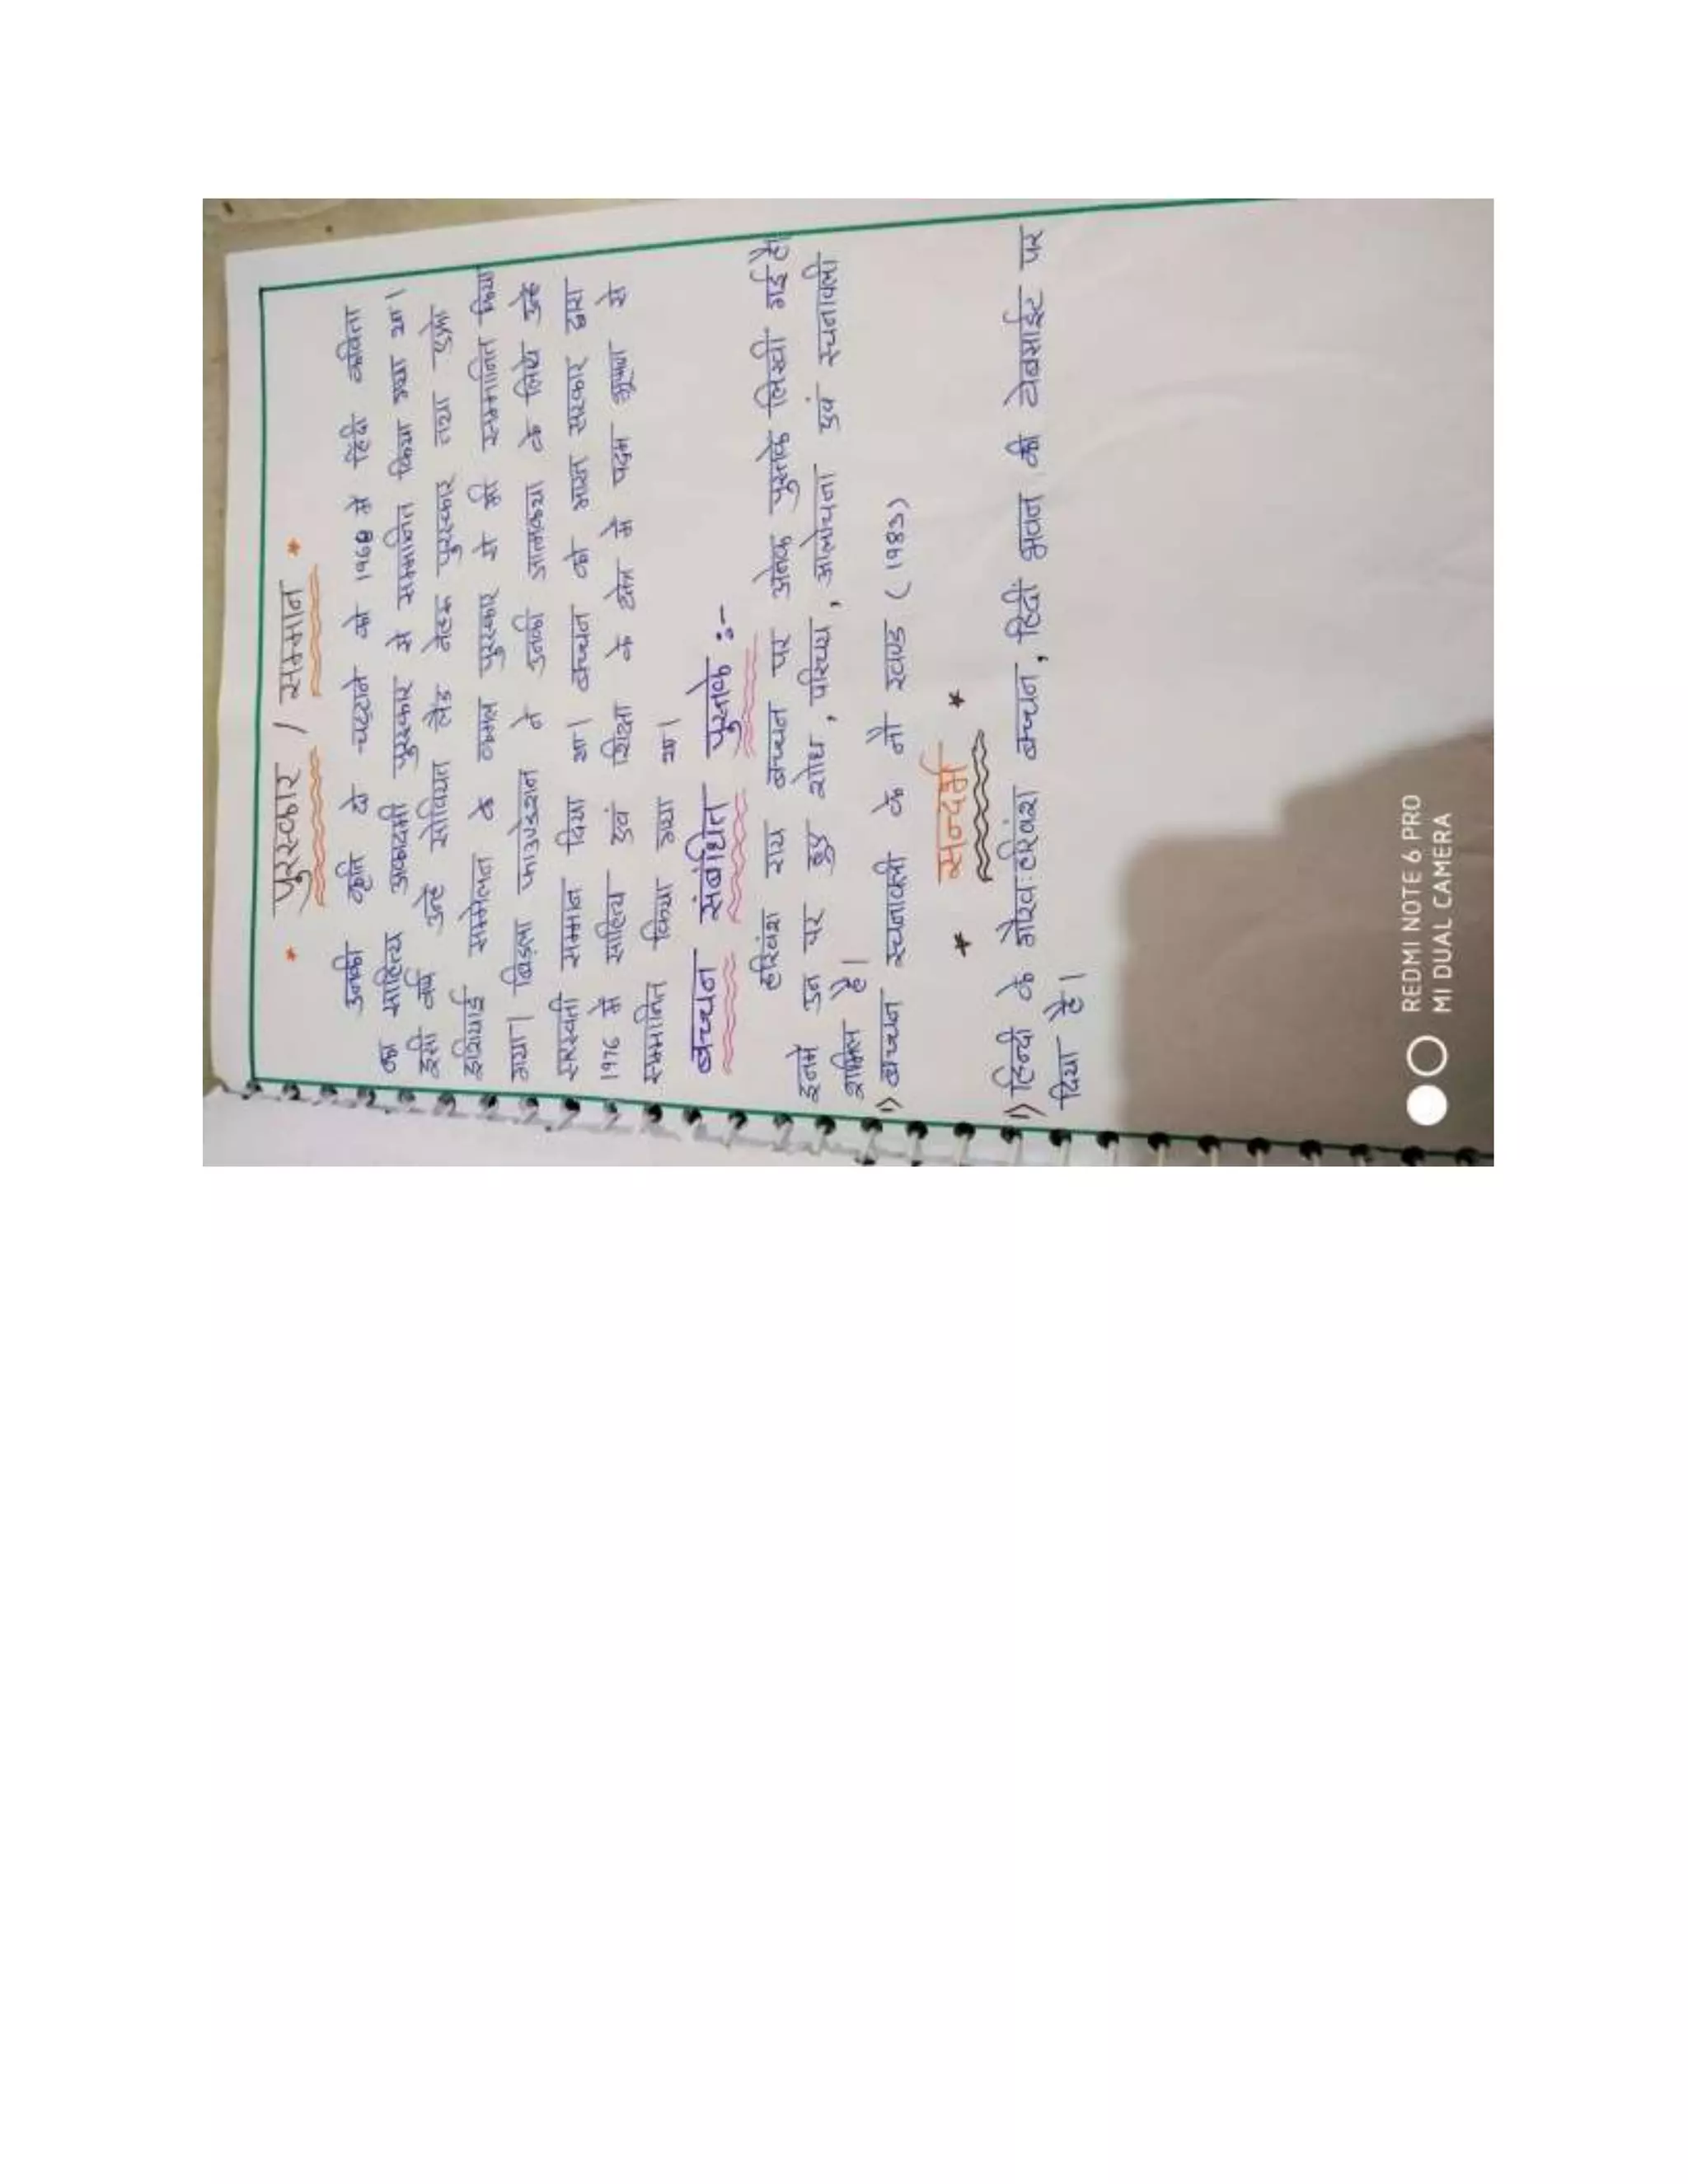 * पुरस्कार / सम्मान *
उनकी कृति दो चट्टाने को 1968 मे हिंदी कविता
का साहित्य अकादमी पुरस्कार से सम्मानित किया गया था।
इसी वर्ष उन्हे सोवियत लैंड नेहरू पुरस्कार तथा एफ्रो
एशियाई सम्मेलन के कमल पुरस्कार से भी सम्मानित किया
गया। बिड़ला फाउण्डेशन ने उनकी आत्मकथा के लिये उन्हे
सरस्वती सम्मान दिया था। बच्चन को भारत सरकार द्वारा
1976 में साहित्य एवं शिक्षा के क्षेत्र में पद्म भूषण से
सम्मानित किया गया था।
बच्चन संबंधित पुस्तके :-
हरिवंश राय बच्चन पर अनेक पुस्तके लिखी गई है।
इनमे उन पर हुए शोध, परिचय, आलोचना एवं रचनावली
शामिल है।
1) बच्चन रचनावली के नौ खण्ड (1983)
* सन्दर्भ *
1) हिन्दी के गौरव:हरिवंश बच्चन, हिंदी भवन की वेबसाईट पर
दिया है।
REDMI NOTE 6 PRO
MI DUAL CAMERA